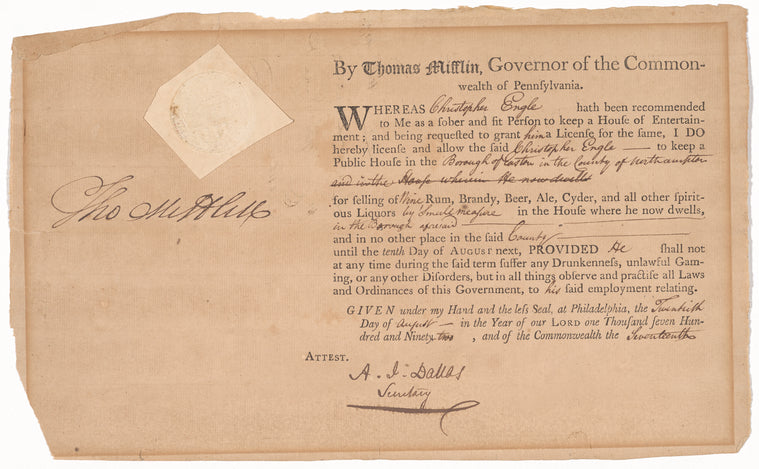 By Thomas Mifflin, Governor of the Common-
wealth of Pennſylvania.
WHEREAS Christopher Engle hath been recommended
to Me as a ſober and fit Perſon to keep a Houſe of Entertain-
ment; and being requeſted to grant him a Licenſe for the ſame, I DO
hereby licenſe and allow the ſaid Christopher Engle — to keep a
Public Houſe in the Borough of Easton in the County of Northampton
and in the House wherein He now dwells
for ſelling of Wine Rum, Brandy, Beer, Ale, Cyder, and all other ſpirit-
ous Liquors by Small Measure in the Houſe where he now dwells,
in the Borough aforesaid
and in no other place in the ſaid County
until the tenth Day of AUGUST next, PROVIDED He ſhall not
at any time during the ſaid term ſuffer any Drunkenneſs, unlawful Gam-
ing, or any other Diſorders, but in all things obſerve and practiſe all Laws
and Ordinances of this Government, to his ſaid employment relating.
GIVEN under my Hand and the leſs Seal, at Philadelphia, the Twentieth
Day of August — in the Year of our LORD one Thouſand ſeven Hun-
dred and Ninety two , and of the Commonwealth the Seventeenth
Tho Mifflin
ATTEST.
A. J. Dallas
Secretary